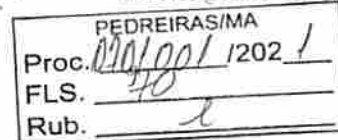 PEDREIRAS/MA
Proc. 0201001 /2021
FLS. 70
Rub.